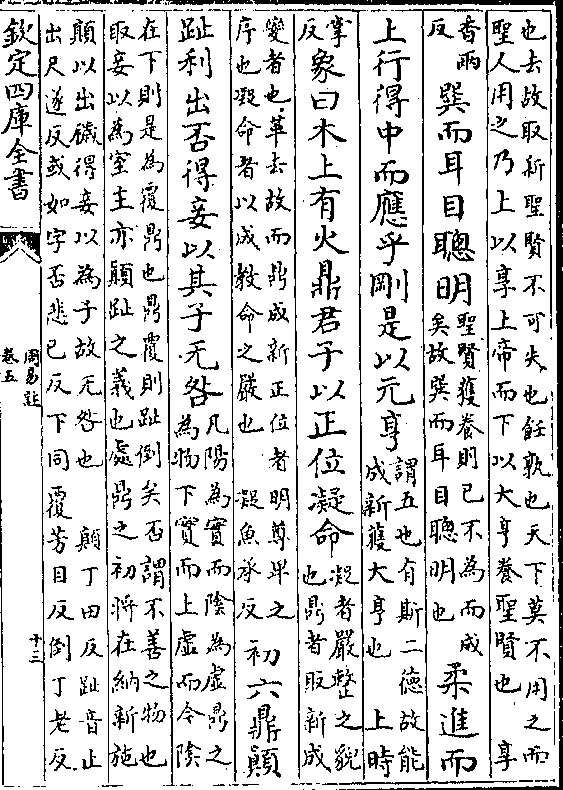 也去故取新聖賢不可失也飪孰也天下莫不用之而
聖人用之乃上以享上帝而下以大亨養聖賢也 享
香兩
反
巽而耳目聰明
聖賢獲養則已不為而成
矣故巽而耳目聰明也
柔進而
上行得中而應乎剛是以元亨
謂五也有斯二德故能
成新獲大亨也 上時
掌
反
象曰木上有火鼎君子以正位凝命
凝者嚴整之貌
也鼎者取新成
變者也革去故而鼎成新正位者明尊卑之
序也凝命者以成教命之嚴也 凝魚承反
初六鼎顛
趾利出否得妾以其子无咎
凡陽為實而陰為虛鼎之
為物下實而上虛而今陰
在下則是為覆鼎也鼎覆則趾倒矣否謂不善之物也
取妾以為室主亦顛趾之義也處鼎之初將在納新施
顛以出穢得妾以為子故无咎也 顛丁田反趾音止
出尺遂反或如字否悲已反下同覆芳目反倒丁老反
欽定四庫全書
周易註
卷五
十三